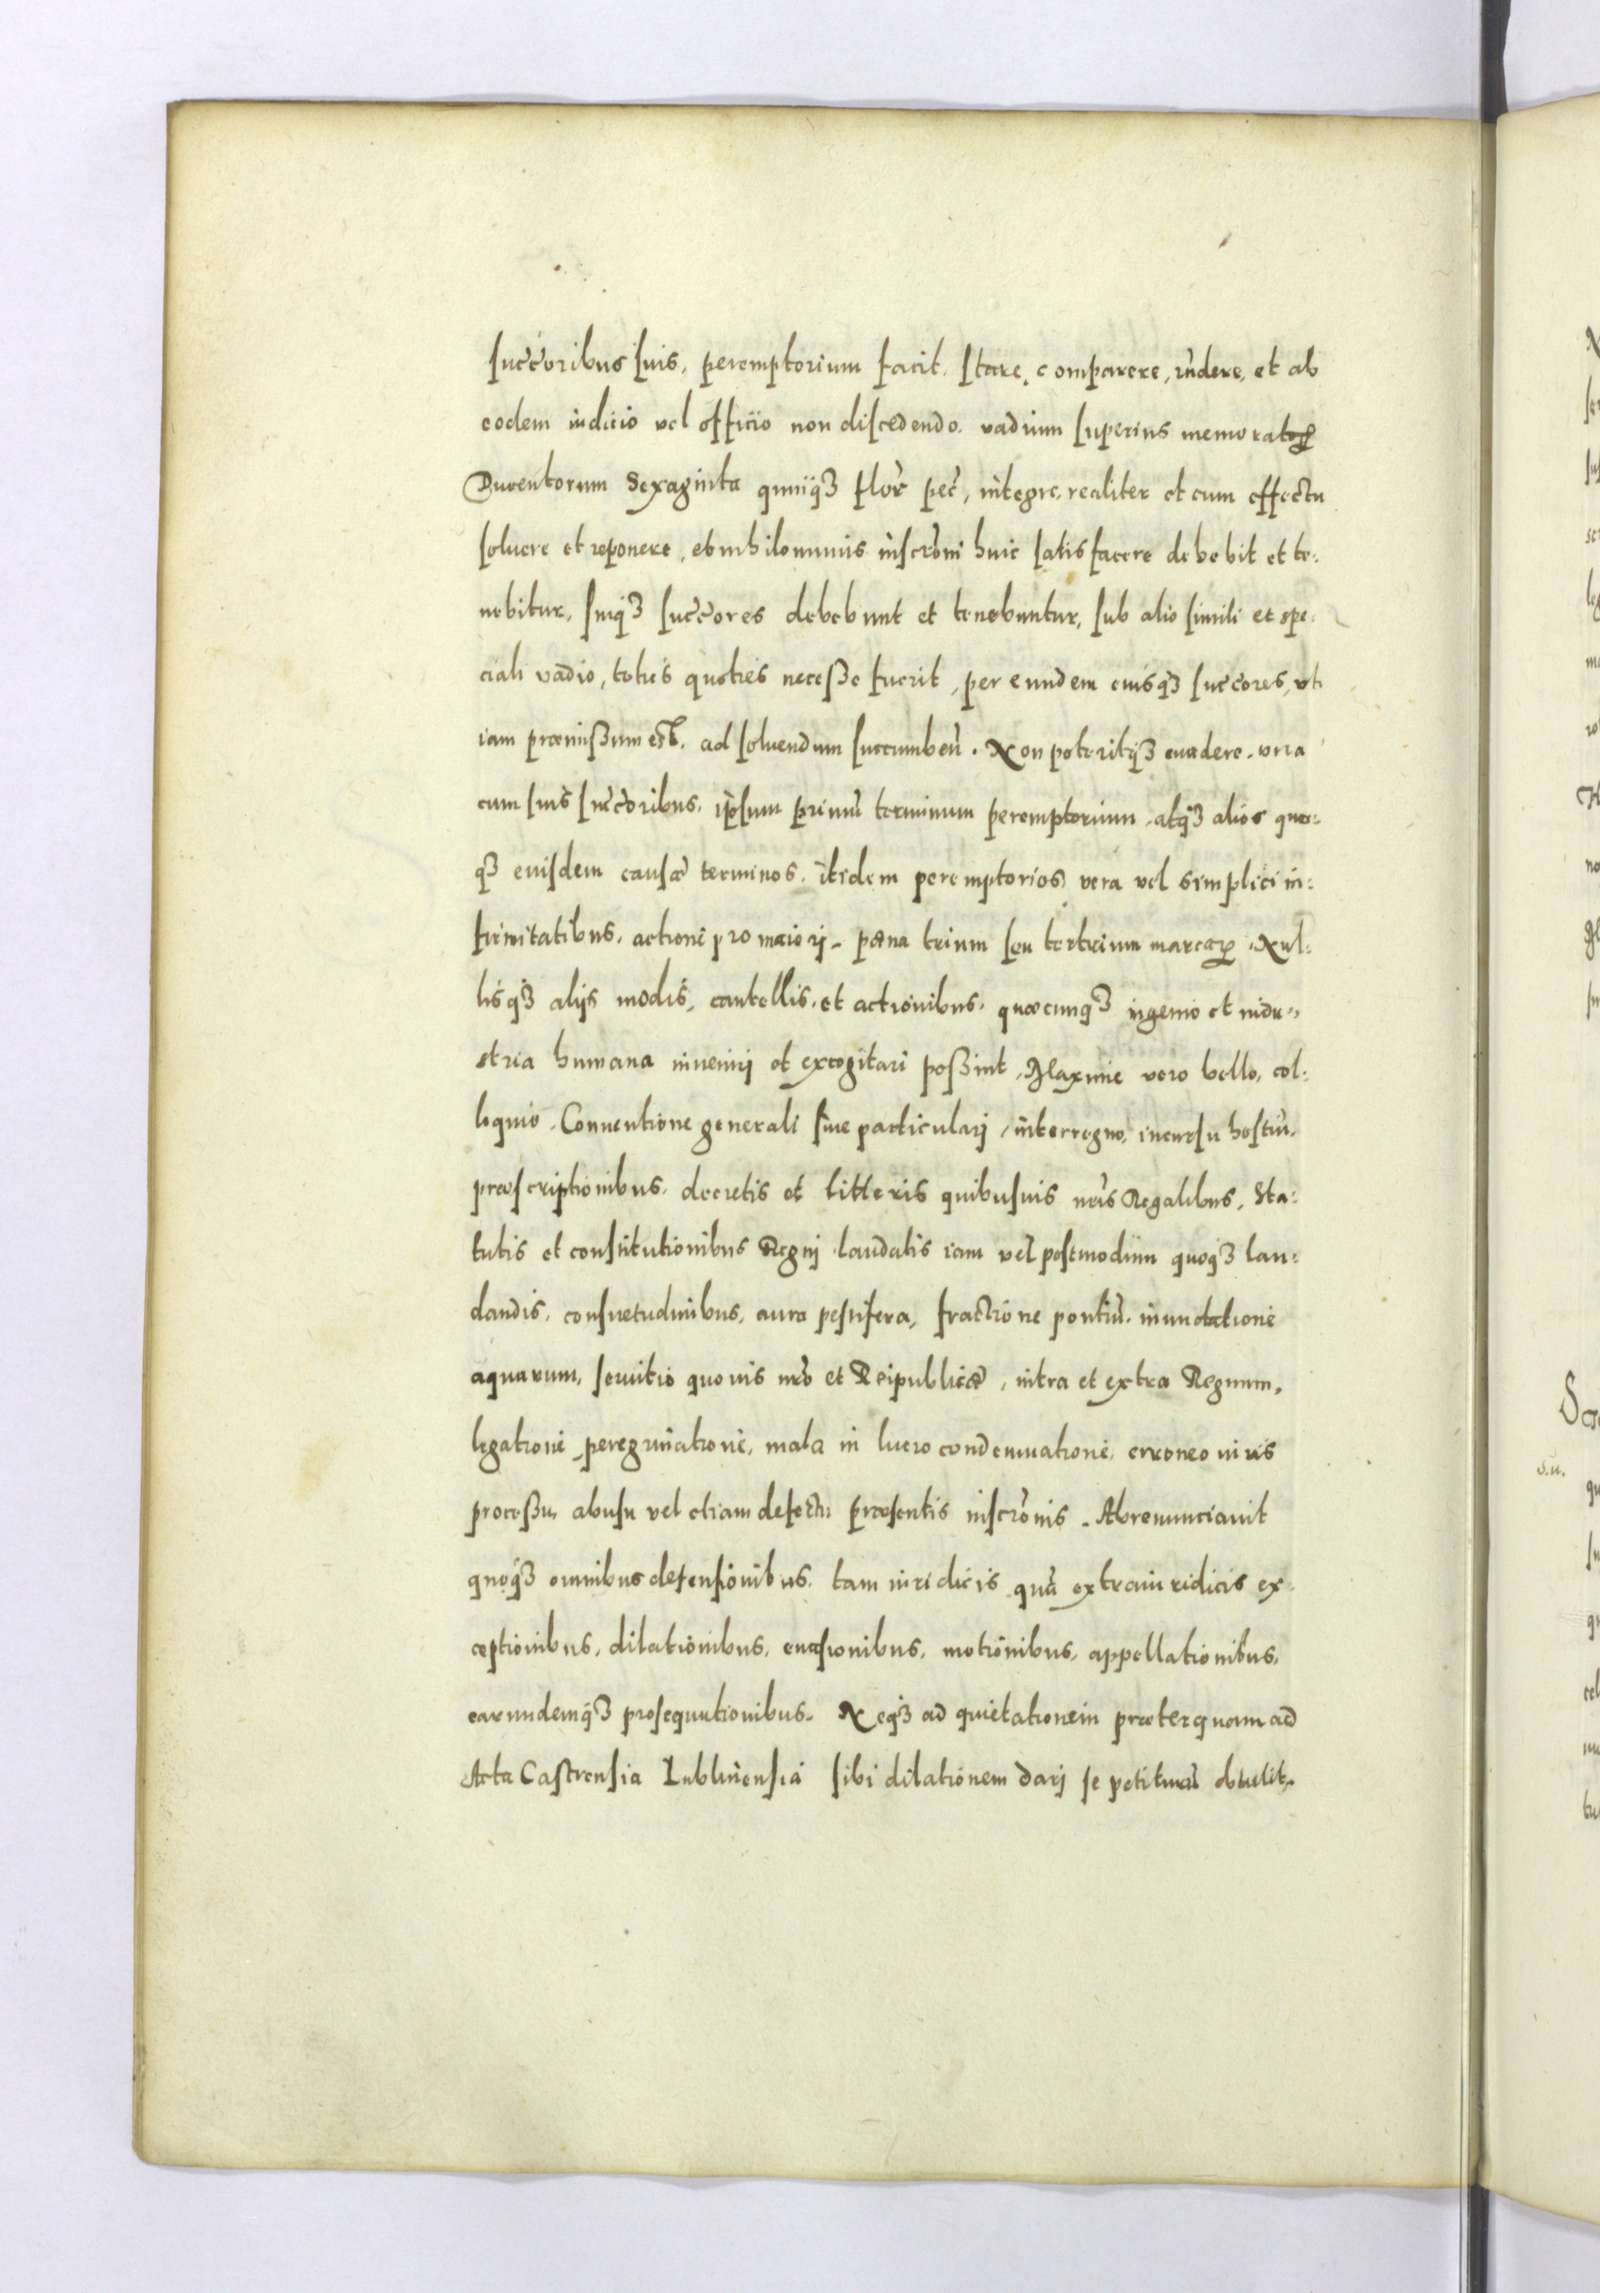 succ̃oribus suis, peremptorium facit. stare, comparere, rñdere, et ab
eodem iudicio vel officio non discedendo. vadium superius memoratoꝝ
Ducentorum Sexaginta quinqꝫ flor̃ pec̃, integre, realiter et cum effectu
soluere et reponere, et nihilominus inscrõni huic satisfacere debebit et te:
nebitur, suiqꝫ succ̃ores debebunt et tenebuntur, sub alio simili et spe:
ciali vadio, toties quoties necesse fuerit, per eundem eiusqꝫ succ̃ores, vti
iam præmissum est, ad soluendum succumbeñ. Non poteritqꝫ euadere. vna
cum suis succ̃oribus. ipsum primũ terminum peremptorium, atqꝫ alios quos:
qꝫ eiusdem causæ terminos. itidem peremptorios, vera vel simplici in:
firmitatibus, actione pro maiorj, pæna trium seu tertrium marcaꝝ, Nul:
lisqꝫ alijs modis, cautellis, et actionibus, quæcunqꝫ ingenio et indu:
stria humana inuenirj et excogitari possint, Maxime vero bello, col:
loquio. Conuentione generali siue particularj, interregno, incursu hostiũ.
præscriptionibus, decretis et litteris quibusuis nr̃is Regalibus, Sta:
tutis et constitutionibus Regnj laudatis iam vel postmodum quoqꝫ lau:
dandis, consuetudinibus, aura pestifera, fractione pontiũ, inundatione
aquarum, seruitio quouis nr̃o et Reipublicæ, intra et extra Regnum,
legatione, peregrinatione, mala in lucro condemnatione, erroneo iuris
processu, abusu vel etiam defectu præsentis inscrõnis. Abrenunciauit
quoqꝫ omnibus defensionibus, tam iuridicis quã extraiuridicis ex:
ceptionibus, dilationibus, euasionibus, motionibus, appellationibus,
earundemqꝫ prosequutionibus. Neqꝫ ad quietationem præterquam ad
Acta Castrensia Lublinensia sibi dilationem darj se petiturũ obtulit.